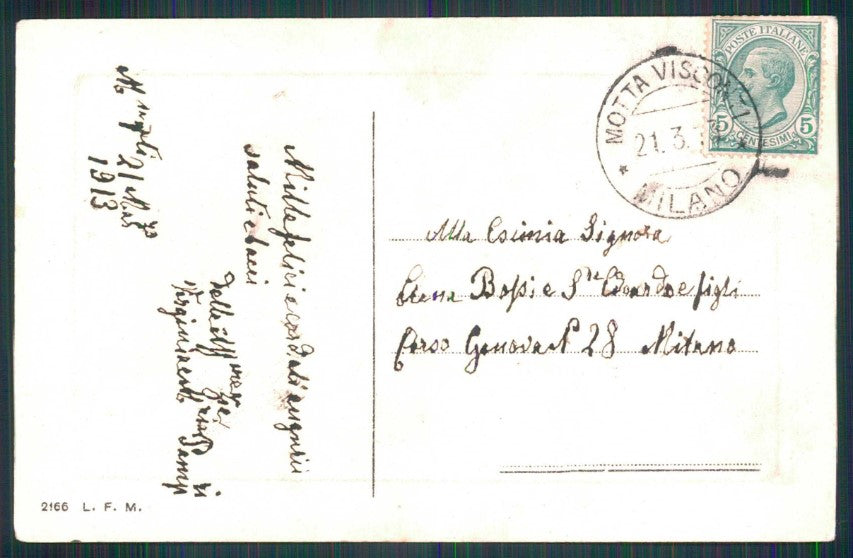 POSTE ITALIANE
5 CENTESIMI 5
MOTTA VISCONTI
21.3.13
MILANO
Marzo
1913
Mille felici e cordiali auguri
saluti e baci
Dalle
Alla Esimia Signora
Elena Bossi e Sre Edoardo e figli
Corso Genova N 28 Milano
2166 L. F. M.